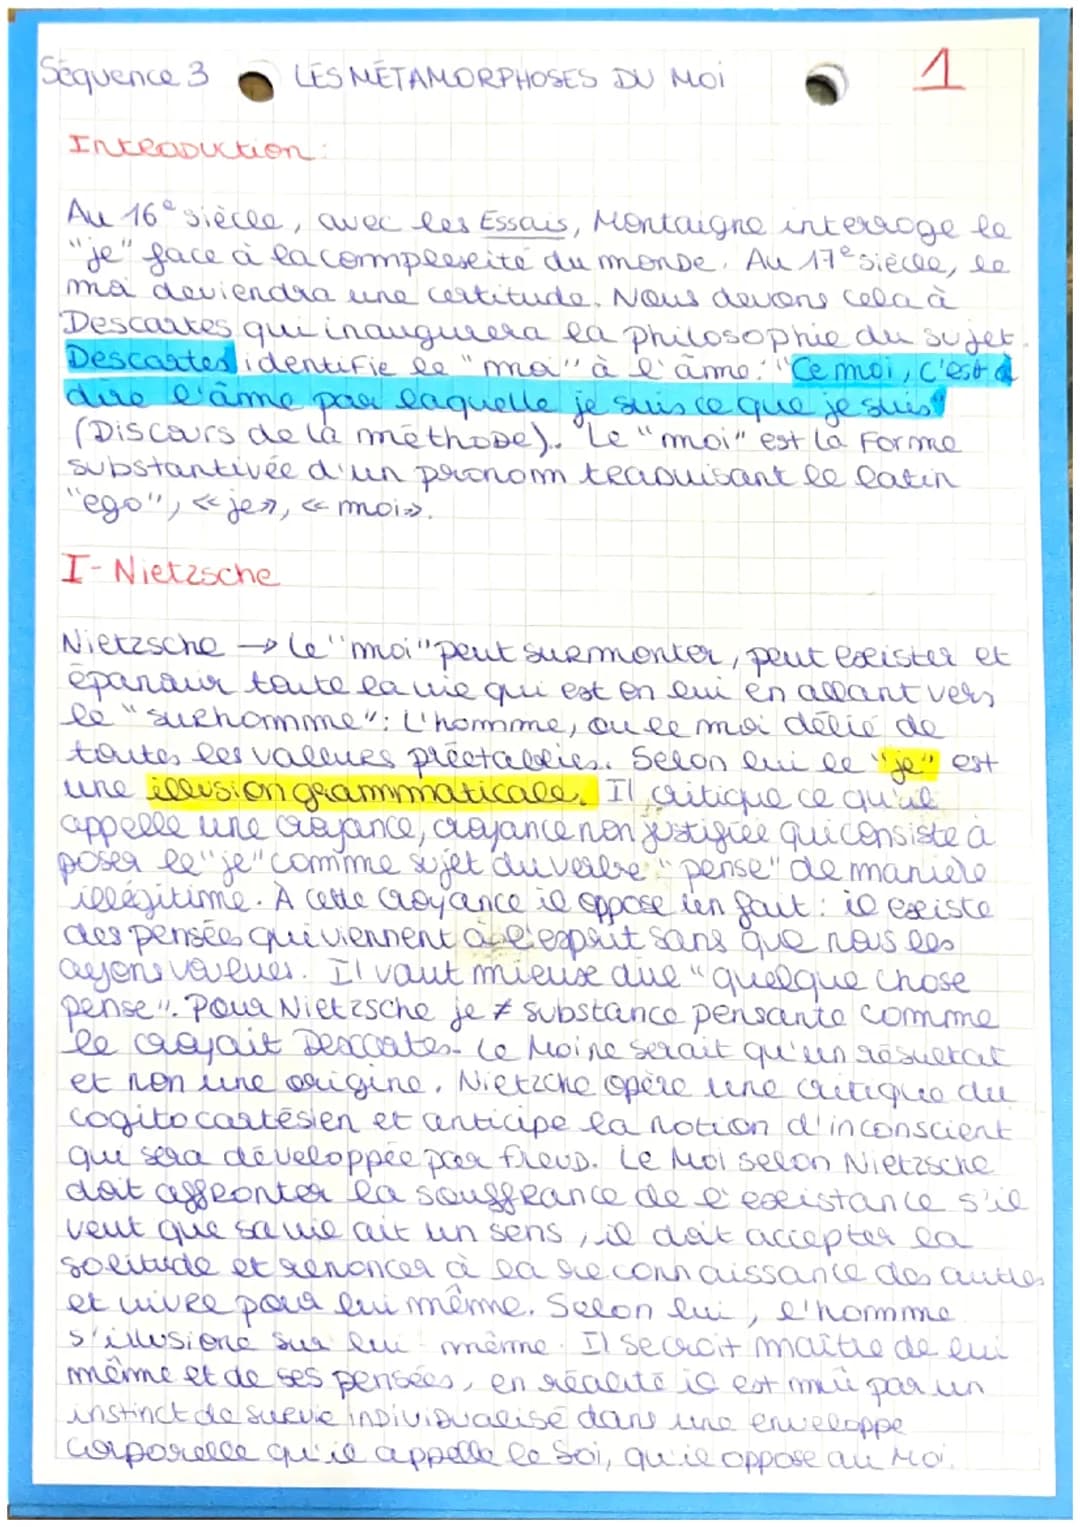 Séquence 3 LES MÉTAMORPHOSES DU MOI 1
Introduction:
Au 16e siècle, avec les Essais, Montaigne interroge le
"je" face à la complexité du monde. Au 17e siècle, le
moi deviendra une certitude. Nous devons cela à
Descartes qui inaugurera la philosophie du sujet.
Descartes identifie le "moi" à l'âme: "Ce moi, c'est à
dire l'âme par laquelle je suis ce que je suis"
(Discours de la méthode). Le "moi" est la forme
substantivée d'un pronom traduisant le latin
"ego", «je», «moi».
I- Nietzsche
Nietzsche → Le "moi" peut surmonter, peut exister et
épanouir toute la vie qui est en lui en allant vers
le "surhomme": L'homme, ou le moi délié de
toutes les valeurs préétablies. Selon lui le "je" est
une illusion grammaticale. Il critique ce qu'il
appelle une croyance, croyance non justifiée qui consiste à
poser le "je" comme sujet du verbe "pense" de manière
illégitime. À cette croyance il oppose un fait: il existe
des pensées qui viennent à l'esprit sans que nous les
ayons voulues. Il vaut mieux dire "quelque chose
pense". Pour Nietzsche je ≠ substance pensante comme
le croyait Descartes. Le Moi ne serait qu'un résultat
et non une origine. Nietzche opère une critique du
cogito cartésien et anticipe la notion d'inconscient
qui sera développée par Freud. Le Moi selon Nietzsche
doit affronter la souffrance de l'existance s'il
veut que sa vie ait un sens, il doit accepter la
solitude et renoncer à la reconnaissance des autres
et vivre pour lui même. Selon lui, l'homme
s'illusione sur lui-même. Il se croit maître de lui
même et de ses pensées, en réalité il est mû par un
instinct de survie individualisé dans une enveloppe
corporelle qu'il appelle le Soi, qu'il oppose au Moi.